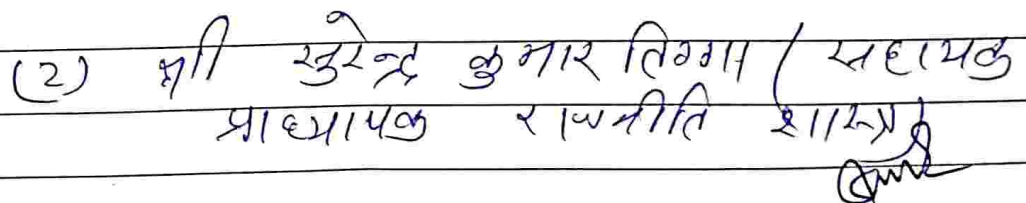 (2) श्री सुरेन्द्र कुमार तिग्गा / सहायक
प्राध्यापक राजनीति शास्त्र